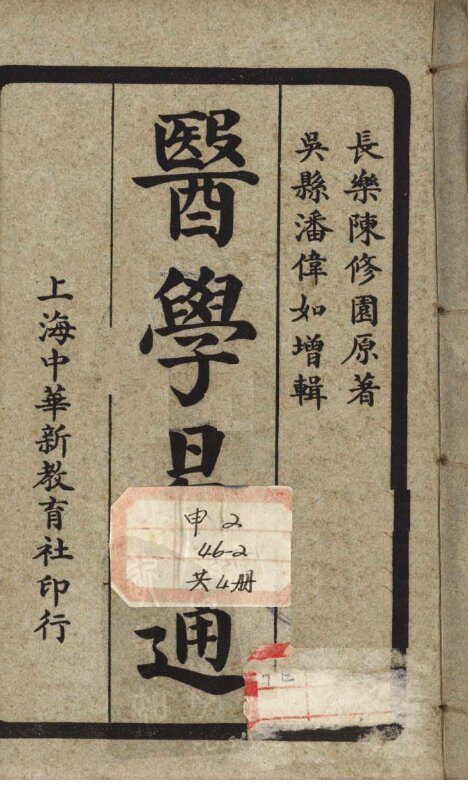 長樂陳修園原著
吳縣潘偉如增輯
醫學易通
上海中華新教育社印行
申2
46-2
共4册